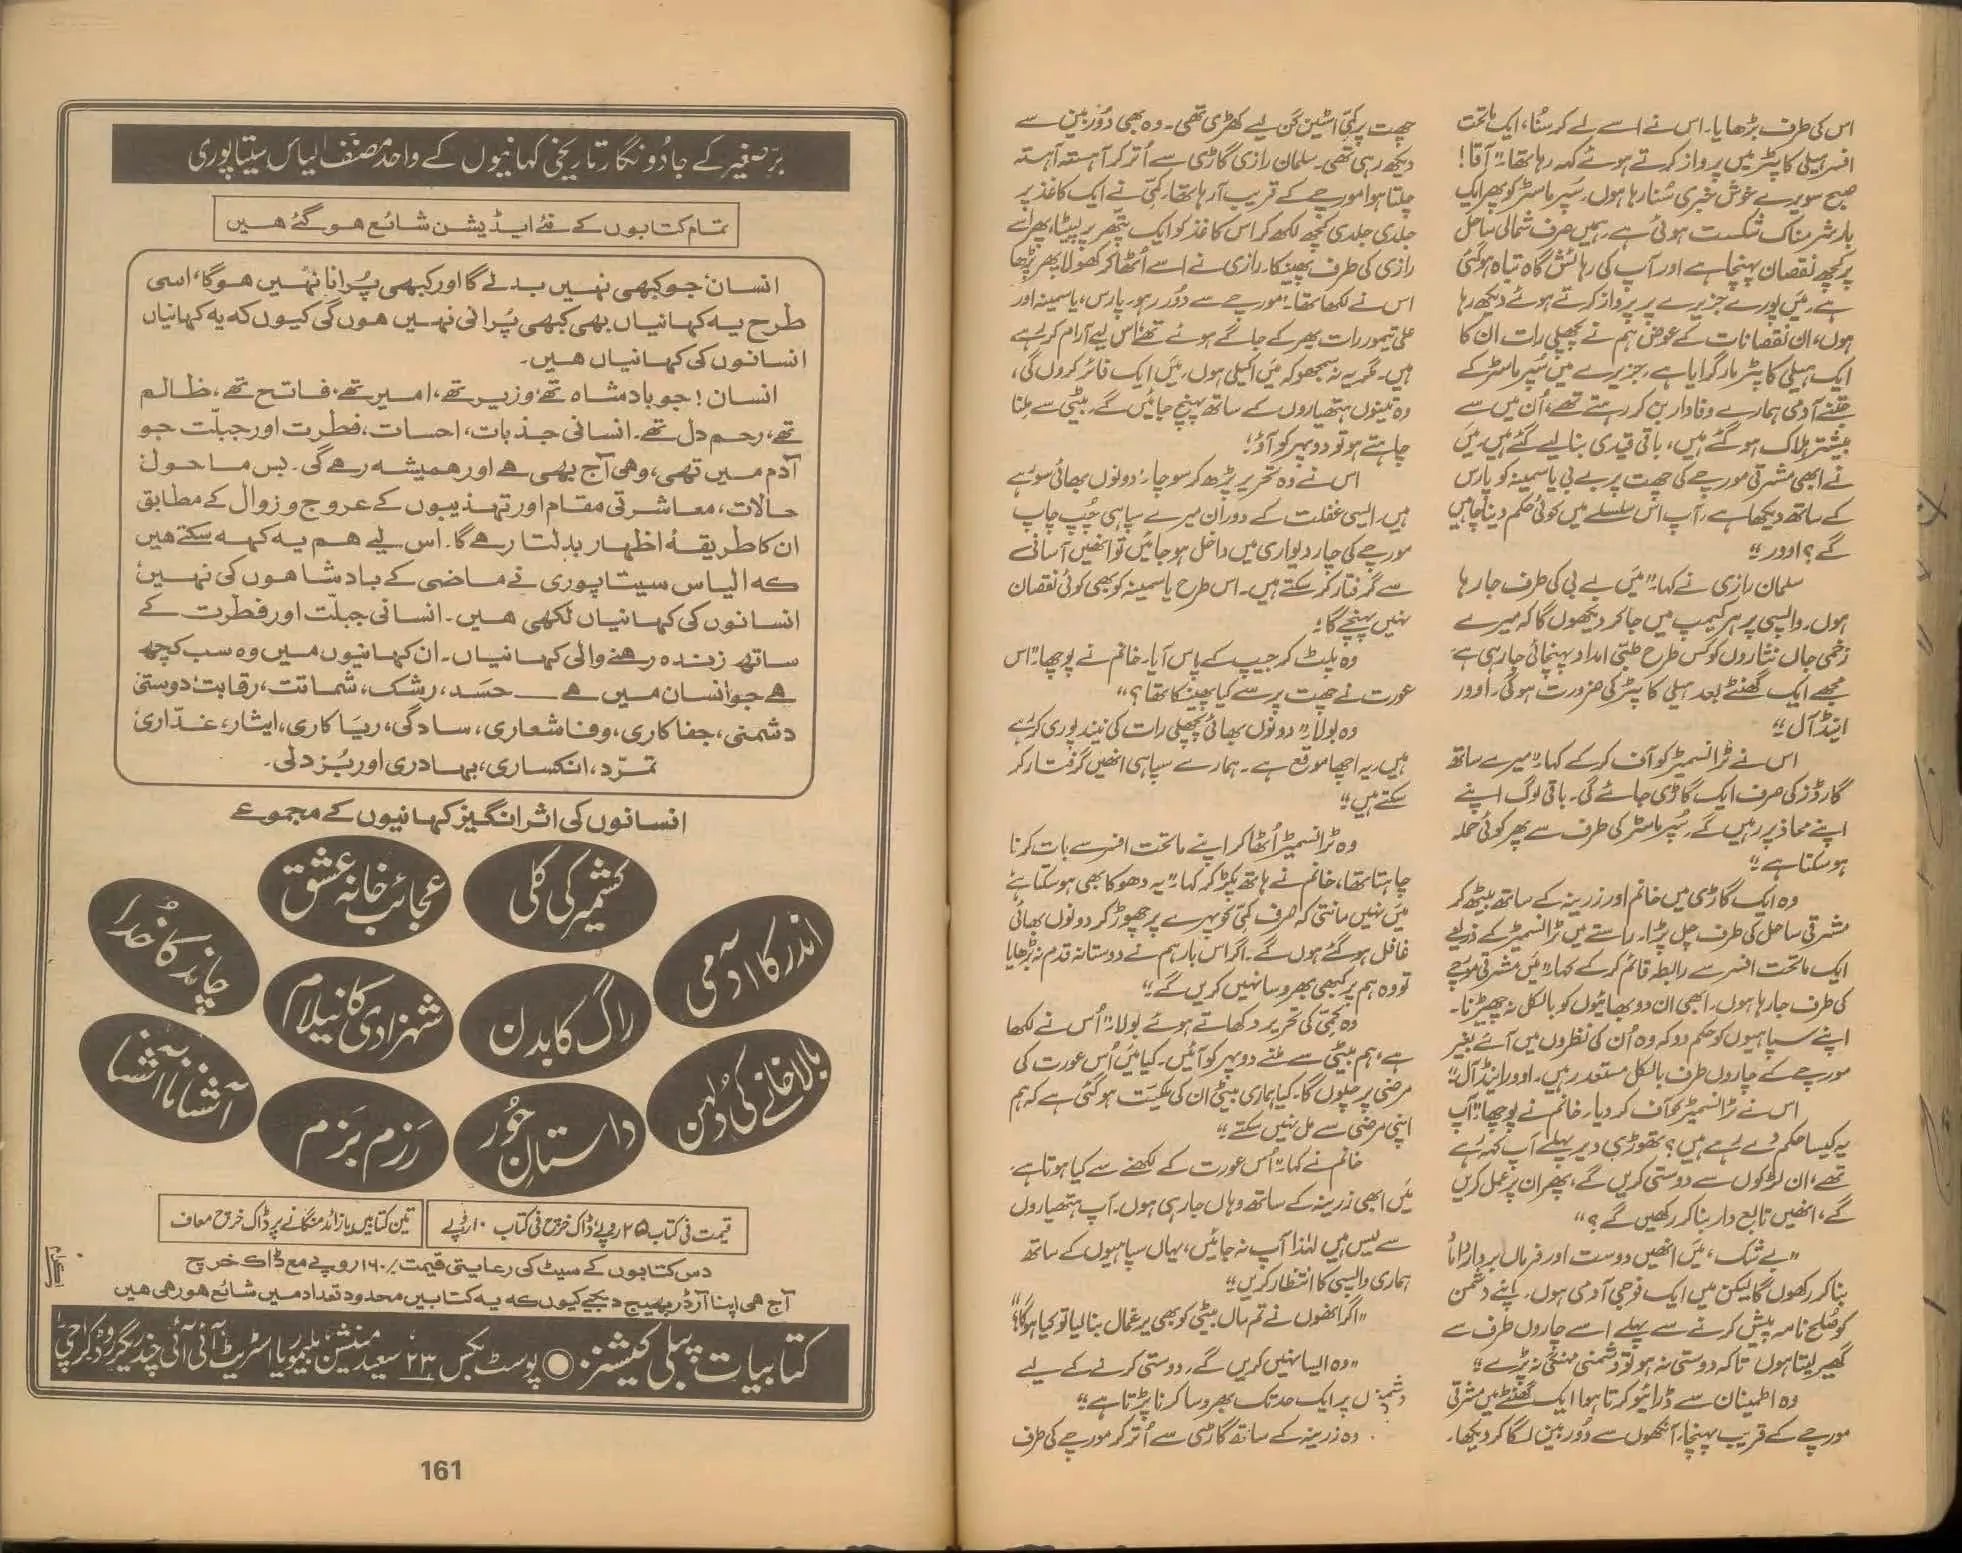 اس کی طرف بڑھایا۔ اس نے اسے لے کر سُنا، ایک ماتحت
افسر ہیلی کاپٹر میں پرواز کرتے ہوئے کہہ رہا تھا ”آقا!
صبح سویرے خوش خبری سُنا رہا ہوں، سُپر ماسٹر کو پھر ایک
بار شرمناک شکست ہوئی ہے، ہمیں صرف شمالی ساحل
پر کچھ نقصان پہنچا ہے اور آپ کی رہائش گاہ تباہ ہو گئی
ہے، مَیں پورے جزیرے پر پرواز کرتے ہوئے دیکھ رہا
ہوں، ان نقصانات کے عوض ہم نے پچھلی رات ان کا
ایک ہیلی کاپٹر مار گرایا ہے، جزیرے میں سُپر ماسٹر کے
جتنے آدمی ہمارے وفادار بن کر رہتے تھے، اُن میں سے
بیشتر ہلاک ہو گئے ہیں، باقی قیدی بنا لیے گئے ہیں، مَیں
نے ابھی مشرقی مورچے کی چھت پر بے بی یاسمینہ کو پارس
کے ساتھ دیکھا ہے، آپ اس سلسلے میں کوئی حکم دینا چاہیں
گے؟ اوور“
سلمان رازی نے کہا ”مَیں بے بی کی طرف جا رہا
ہوں، واپسی پر ہر کیمپ میں جا کر دیکھوں گا کہ میرے
زخمی جاں نثاروں کو کس طرح طبّی امداد پہنچائی جا رہی ہے۔
مجھے ایک گھنٹے بعد ہیلی کاپٹر کی ضرورت ہو گی۔ اوور
اینڈ آل“
اس نے ٹرانسمیٹر کو آف کر کے کہا ”میرے ساتھ
گارڈز کی صرف ایک گاڑی جائے گی۔ باقی لوگ اپنے
اپنے محاذ پر رہیں گے، سُپر ماسٹر کی طرف سے پھر کوئی حملہ
ہو سکتا ہے“
وہ ایک گاڑی میں خانم اور زرینہ کے ساتھ بیٹھ کر
مشرقی ساحل کی طرف چل پڑا۔ راستے میں ٹرانسمیٹر کے ذریعے
ایک ماتحت افسر سے رابطہ قائم کر کے کہا ”مَیں مشرقی مورچے
کی طرف جا رہا ہوں۔ ابھی ان دو بھائیوں کو بالکل نہ چھیڑنا۔
اپنے سپاہیوں کو حکم دو کہ وہ اُن کی نظروں میں آئے بغیر
مورچے کے چاروں طرف بالکل مستعد رہیں۔ اوور اینڈ آل“
اس نے ٹرانسمیٹر کو آف کر دیا۔ خانم نے پوچھا ”آپ
یہ کیسا حکم دے رہے ہیں؟ تھوڑی دیر پہلے آپ کہہ رہے
تھے، ان لڑکوں سے دوستی کریں گے، پھر ان پر عمل کریں
گے، انھیں تابع دار بنا کر رکھیں گے؟“
”بے شک، مَیں انھیں دوست اور فرماں بردار داماد
بنا کر رکھوں گا لیکن میں ایک فوجی آدمی ہوں، اپنے دشمن
کو صُلح نامہ پیش کرنے سے پہلے اسے چاروں طرف سے
گھیر لیتا ہوں تاکہ دوستی نہ ہو تو دشمنی مہنگی نہ پڑے“
وہ اطمینان سے ڈرائیو کرتا ہوا ایک گھنٹے میں مشرقی
مورچے کے قریب پہنچا، آنکھوں سے دُوربین لگا کر دیکھا۔
چھت پر کمّی اسٹین گن لیے کھڑی تھی۔ وہ بھی دُوربین سے
دیکھ رہی تھی۔ سلمان رازی گاڑی سے اُتر کر آہستہ آہستہ
چلتا ہوا مورچے کے قریب آ رہا تھا، کمّی نے ایک کاغذ پر
جلدی جلدی کچھ لکھ کر اس کاغذ کو ایک پتھر پر لپیٹا، پھر اسے
رازی کی طرف پھینکا۔ رازی نے اسے اُٹھا کر کھولا پھر پڑھا
اس نے لکھا تھا ”مورچے سے دُور رہو۔ پارس، یاسمینہ اور
علی تیمور رات بھر کے جاگے ہوئے تھے، اس لیے آرام کر رہے
ہیں۔ مگر یہ نہ سمجھو کہ مَیں اکیلی ہوں، مَیں ایک فائر کروں گی،
وہ تینوں ہتھیاروں کے ساتھ پہنچ جائیں گے، بیٹی سے ملنا
چاہتے ہو تو دوپہر کو آؤ“
اس نے وہ تحریر پڑھ کر سوچا: ”دونوں بھائی سو رہے
ہیں۔ ایسی غفلت کے دوران میرے سپاہی چُپ چاپ
مورچے کی چار دیواری میں داخل ہو جائیں تو انھیں آسانی
سے گرفتار کر سکتے ہیں۔ اس طرح یاسمینہ کو بھی کوئی نقصان
نہیں پہنچے گا“
وہ پلٹ کر جیپ کے پاس آیا۔ خانم نے پوچھا ”اس
عورت نے چھت پر سے کیا پھینکا تھا؟“
وہ بولا ”دونوں بھائی پچھلی رات کی نیند پوری کر رہے
ہیں، یہ اچھا موقع ہے۔ ہمارے سپاہی انھیں گرفتار کر
سکتے ہیں“
وہ ٹرانسمیٹر اُٹھا کر اپنے ماتحت افسر سے بات کرنا
چاہتا تھا، خانم نے ہاتھ پکڑ کر کہا ”یہ دھوکا بھی ہو سکتا ہے
مَیں نہیں مانتی کہ صرف کمّی کو پہرے پر چھوڑ کر دونوں بھائی
غافل ہو گئے ہوں گے۔ اگر اس بار ہم نے دوستانہ قدم نہ بڑھایا
تو وہ ہم پر کبھی بھروسا نہیں کریں گے“
وہ کمّی کی تحریر دکھاتے ہوئے بولا ”اُس نے لکھا
ہے، ہم بیٹی سے ملنے دوپہر کو آئیں۔ کیا مَیں اُس عورت کی
مرضی پر چلوں گا۔ کیا ہماری بیٹی ان کی ملکیت ہو گئی ہے کہ ہم
اپنی مرضی سے مل نہیں سکتے“
خانم نے کہا ”اُس عورت کے لکھنے سے کیا ہوتا ہے،
مَیں ابھی زرینہ کے ساتھ وہاں جا رہی ہوں۔ آپ ہتھیاروں
سے لیس ہیں لہٰذا آپ نہ جائیں، یہاں سپاہیوں کے ساتھ
ہماری واپسی کا انتظار کریں“
”اگر انھوں نے تم ماں بیٹی کو بھی یرغمال بنا لیا تو کیا ہو گا؟“
”وہ ایسا نہیں کریں گے، دوستی کرنے کے لیے
دشمنوں پر ایک حد تک بھروسا کرنا پڑتا ہے“
وہ زرینہ کے ساتھ گاڑی سے اُتر کر مورچے کی طرف
برّصغیر کے جادُو نگار تاریخی کہانیوں کے واحد مصنّف الیاس سیتاپوری
تمام کتابوں کے نئے ایڈیشن شائع ہو گئے ہیں
انسان، جو کبھی نہیں بدلے گا اور کبھی پُرانا نہیں ہوگا، اسی
طرح یہ کہانیاں بھی کبھی پُرانی نہیں ہوں گی کیوں کہ یہ کہانیاں
انسانوں کی کہانیاں ہیں۔
انسان! جو بادشاہ تھے، وزیر تھے، امیر تھے، فاتح تھے، ظالم
تھے، رحم دل تھے۔ انسانی جذبات، احسات، فطرت اور جبلّت جو
آدم میں تھی، وہی آج بھی ہے اور ہمیشہ رہے گی۔ بس ماحول
حالات، معاشرتی مقام اور تہذیبوں کے عروج و زوال کے مطابق
ان کا طریقۂ اظہار بدلتا رہے گا۔ اس لیے ہم یہ کہہ سکتے ہیں
کہ الیاس سیتاپوری نے ماضی کے بادشاہوں کی نہیں،
انسانوں کی کہانیاں لکھی ہیں۔ انسانی جبلّت اور فطرت کے
ساتھ زندہ رہنے والی کہانیاں۔ ان کہانیوں میں وہ سب کچھ
ہے جو انسان میں ہے ــــ حسَد، رشک، شماتت، رقابت، دوستی
دشمنی، جفاکاری، وفا شعاری، سادگی، ریاکاری، ایثار، غدّاری
تمرّد، انکساری، بہادری اور بُزدلی۔
انسانوں کی اثر انگیز کہانیوں کے مجموعے
کشمیر کی کلی
عجائب خانہ عشق
اندر کا آدمی
چاند کا خدا
راگ کا بدن
شہزادی کا نیلام
بالا خانے کی دُلہن
آشنا نا آشنا
داستانِ حُور
رَزم بَزم
قیمت فی کتاب ۲۵ روپے، ڈاک خرچ فی کتاب ۱۰ روپے
تین کتابیں یا زائد منگانے پر ڈاک خرچ معاف
دس کتابوں کے سیٹ کی رعایتی قیمت /۱۶۰ روپے مع ڈاک خرچ
آج ہی اپنا آرڈر بھیج دیجیے کیوں کہ یہ کتابیں محدود تعداد میں شائع ہو رہی ہیں
کتابیات پبلی کیشنز ● پوسٹ بکس ۲۳، سعید منشن، بلیموریا اسٹریٹ، آئی آئی چندریگر روڈ، کراچی
161